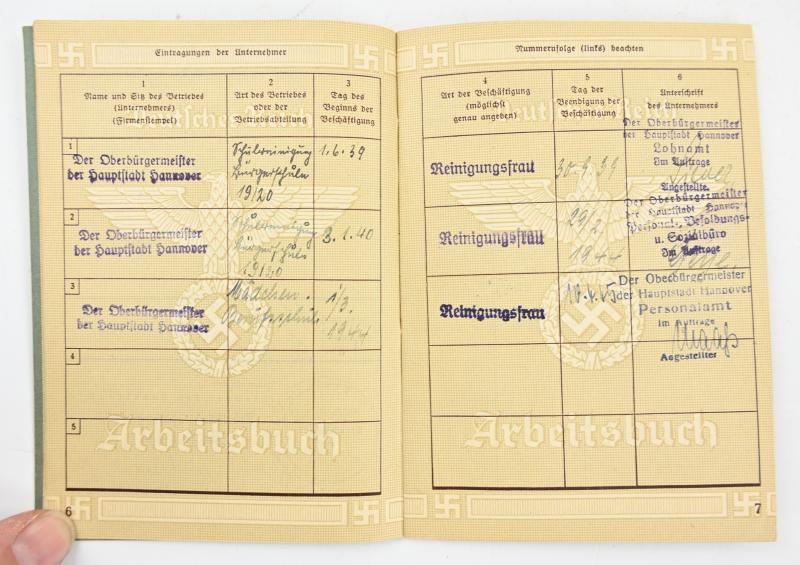 Eintragungen der Unternehmer
1
Name und Sitz des Betriebes
(Unternehmers)
(Firmenstempel)
2
Art des Betriebes
oder der
Betriebsabteilung
3
Tag des
Beginns der
Beschäftigung
Deutsches Reich
1
Der Oberbürgermeister
der Hauptstadt Hannover
Schulreinigung
Bürgerschule
19/20
1.6.39
2
Der Oberbürgermeister
der Hauptstadt Hannover
Schulreinigung
Bürgerschule
19/20
3.1.40
3
Der Oberbürgermeister
der Hauptstadt Hannover
Mädchen-
Berufsschule
1/3.
1944
4
5
Arbeitsbuch
6
Nummernfolge (links) beachten
4
Art der Beschäftigung
(möglichst
genau angeben)
5
Tag der
Beendigung der
Beschäftigung
6
Unterschrift
des Unternehmers
Deutsches Reich
Reinigungsfrau
30.9.39
Der Oberbürgermeister
der Hauptstadt Hannover
Lohnamt
Im Auftrage
Angestellte.
Reinigungsfrau
29/2.
1944
Der Oberbürgermeister
der Hauptstadt Hannover
Personal-, Besoldungs-
u. Sozialbüro
Im Auftrage
Reinigungsfrau
Der Oberbürgermeister
der Hauptstadt Hannover
Personalamt
im Auftrage
Angestellter
Arbeitsbuch
7